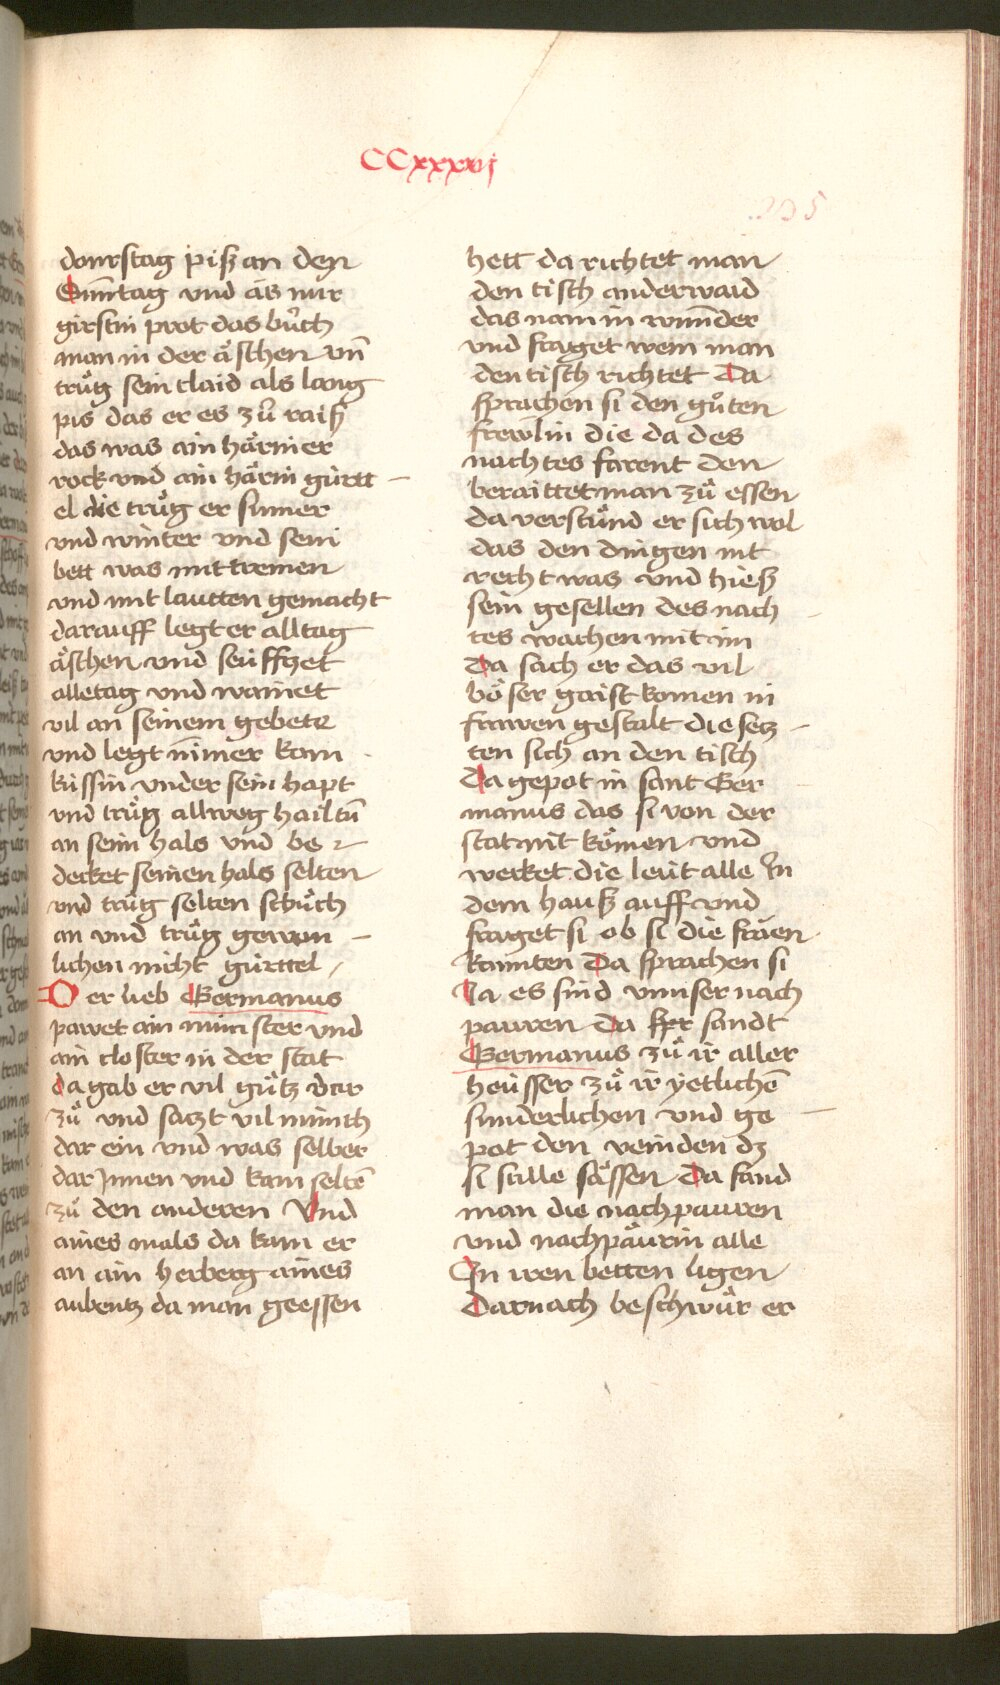 CCxxxvj
235
donrstag pisz an den
Sũntag vnd as nur
girstin prot das bůch
man in der äschen vñ
trůg sein claid als lang
pis das er es zů raisz
das was ain häriner
rock vnd ain härin gürtt
el die trůg er sumer
vnd winter vnd sein
bett was mit tremen
vnd mit lautten gemacht
darauff legt er alltag
äschen vnd seüffczet
alletag vnd wainet
vil an seinem gebete
vnd legt nĩmer kain
küssin vnder sein hapt
vnd trůg allweg hailtũ
an seim hals vnd be
decket seinen hals selten
vnd trůg selten schůch
an vnd trůg gewon
lichen nicht gürttel
Der lieb Germanus
pawet ain münster vnd
ain closter in der stat
da gab er vil gůtz dar
zů vnd saczt vil münch
dar ein vnd was selber
dar Jnnen vnd kam seltẽ
zů den anderen Vnd
aines mals da kam er
an ain herberg aines
aubentz da man geessen
hett da richtet man
den tisch anderwaid
das nam in wunder
vnd fraget wem man
den tisch richtet Da
sprachen si den gůten
frewlin die da des
nachtes farent den
beraittet man zů essen
da verstůnd er sich wol
das den dingen nit
recht was vnd hiesz
sein gesellen des nach
tes wachen mit im
Da sach er das vil
böser gaist komen in
frawen gestalt die secz
ten sich an den tisch
Da gepot in sant Ger
manus das si von der
stat nit kömen vnd
wecket die leüt alle In
dem hausz auff vnd
fraget si ob si die fräen
kannten Da sprachen si
Ja es sind vnnser nach
pauren Da sandt
Germanus zů ir aller
heüsser zů ir yetlichẽ
sunderlichen vnd ge
pot den veinden dz
si stille sässen Da fand
man die nachpauren
vnd nachpäurin alle
In iren betten ligen
Darnach beschwůr er